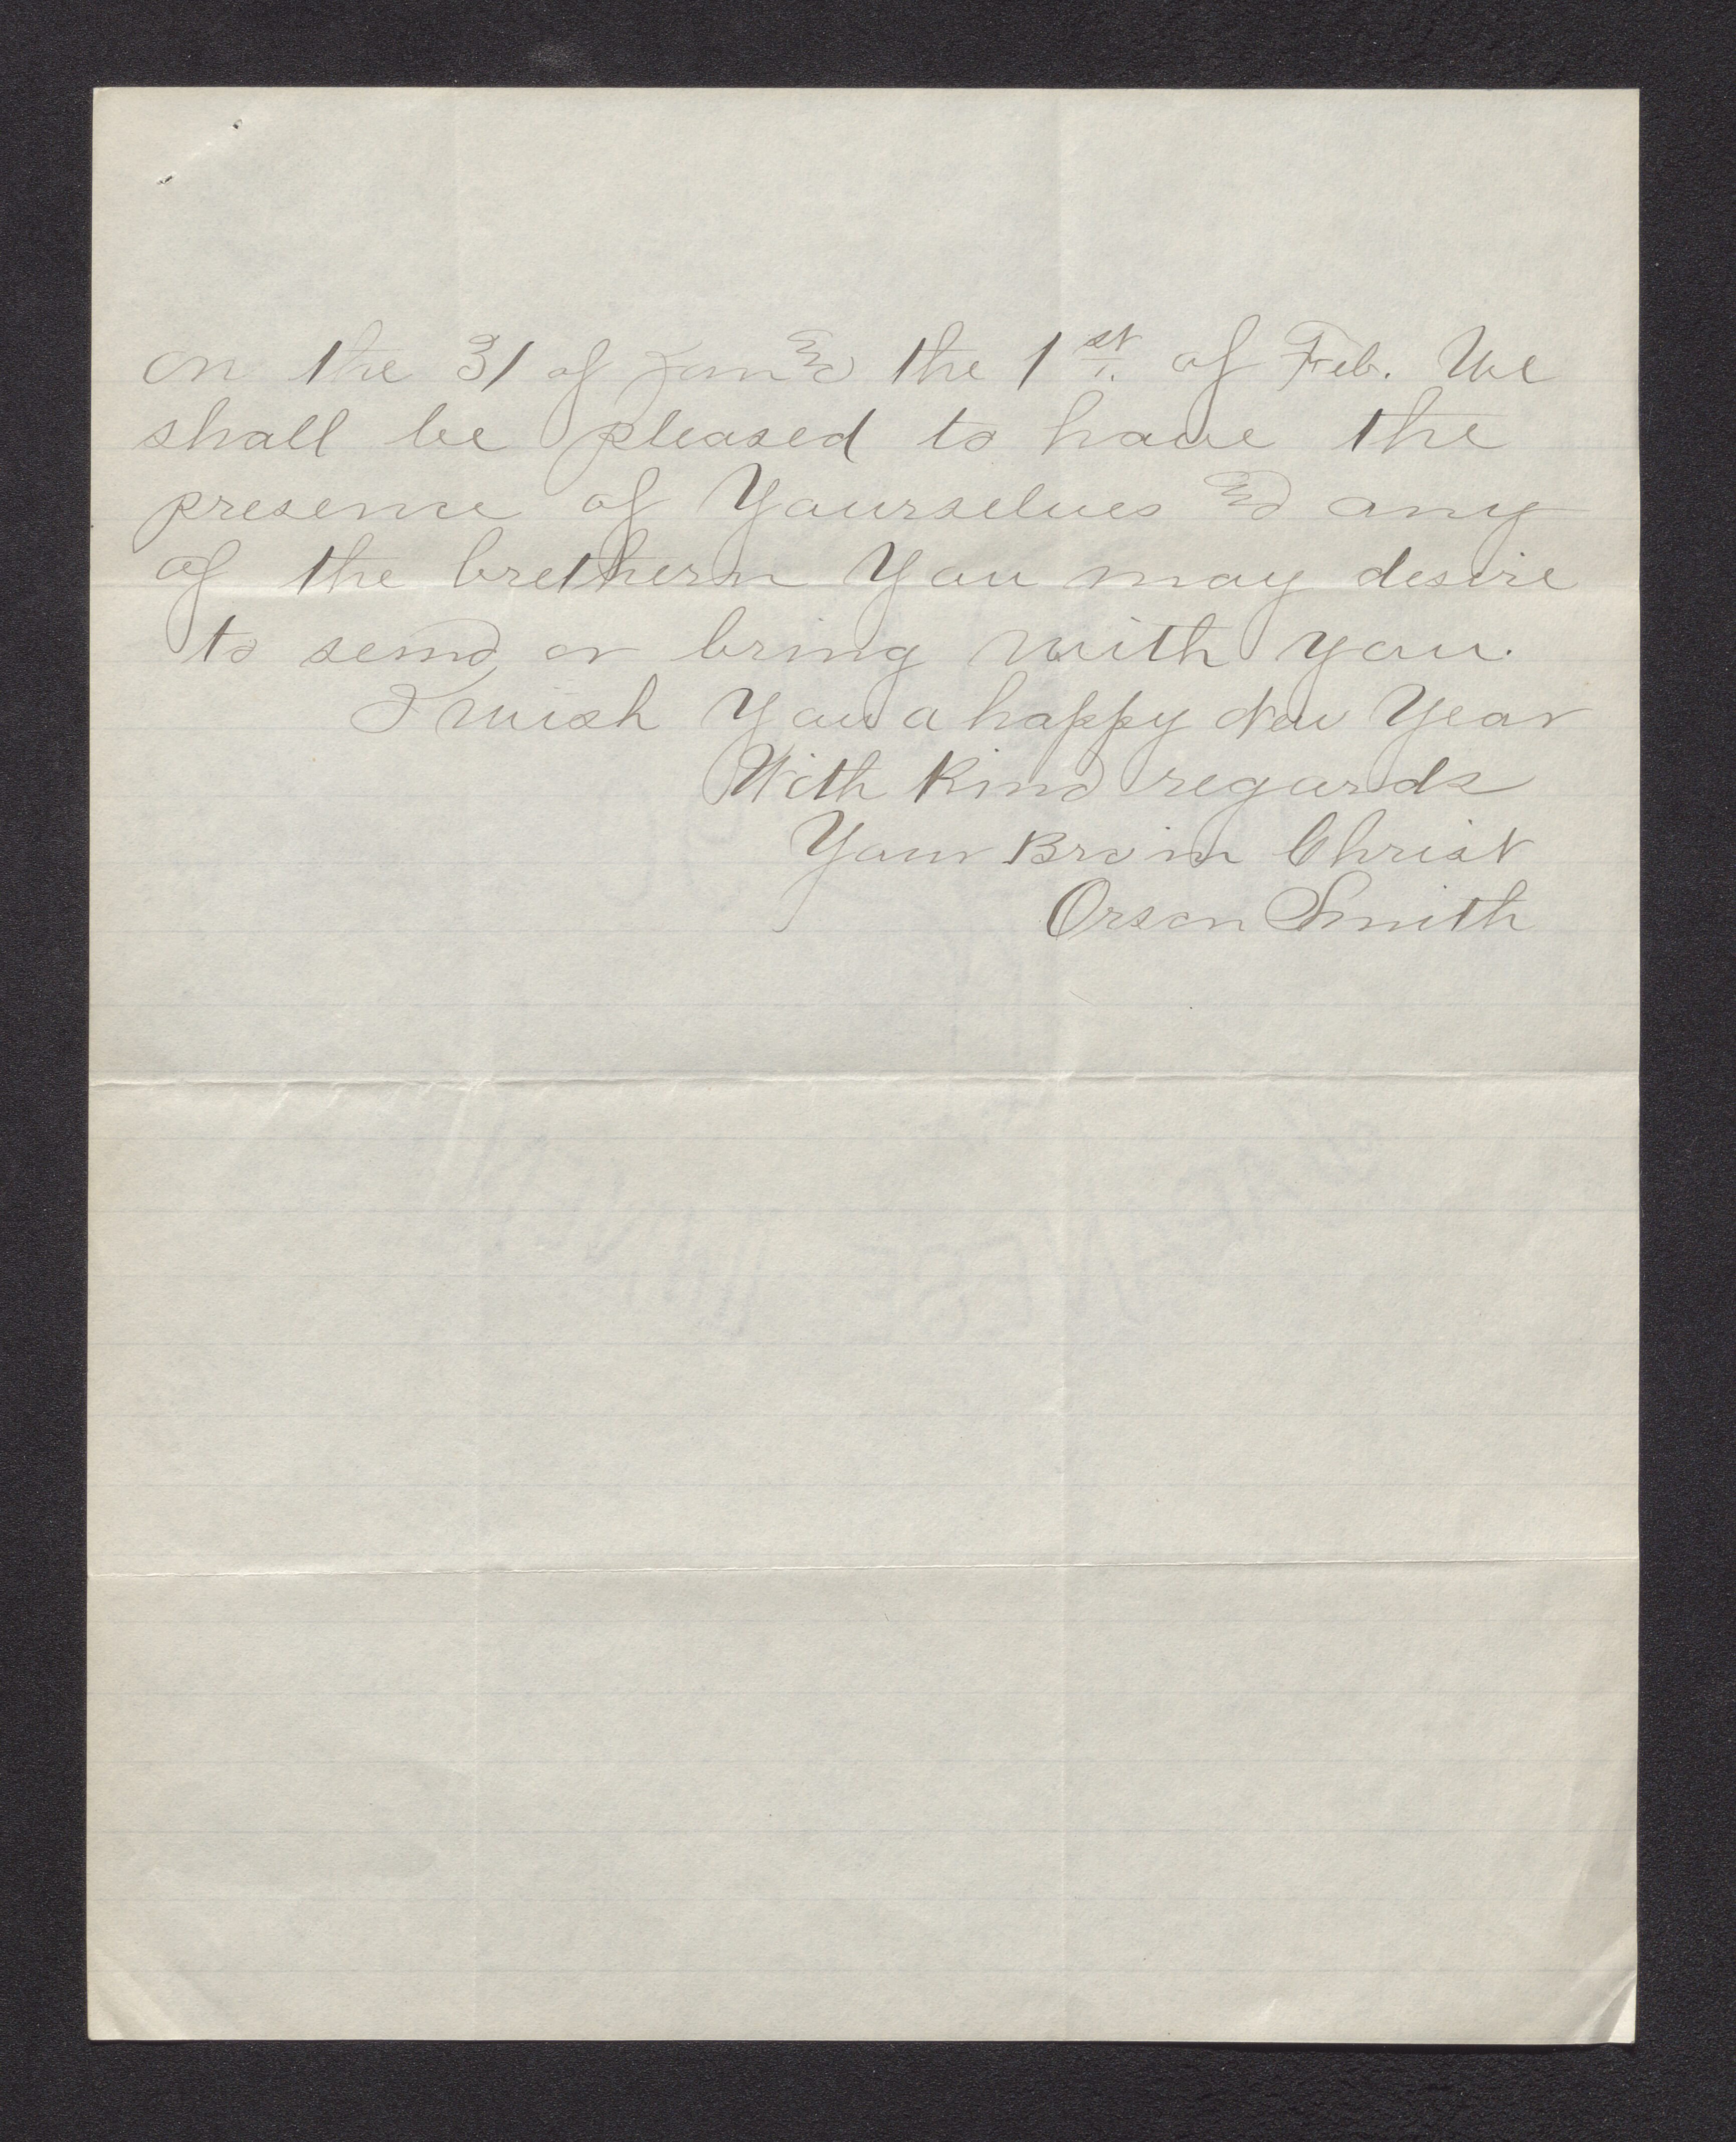 on the 31 of Jan and the 1st. of Feb. We
shall be pleased to have the
presence of Yourselves and any
of the brethern You may desire
to send or bring with you.
I wish You a happy New Year
With Kind regards
Your Bro in Christ
Orson Smith